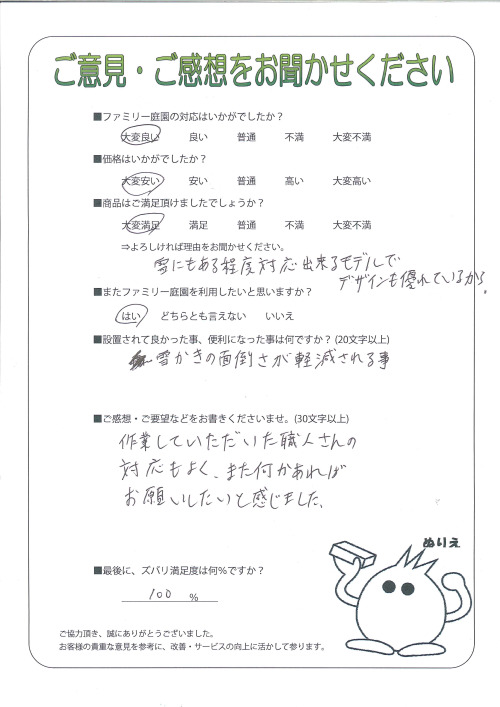 ご意見・ご感想をお聞かせください
■ファミリー庭園の対応はいかがでしたか？
大変良い 良い 普通 不満 大変不満
■価格はいかがでしたか？
大変安い 安い 普通 高い 大変高い
■商品はご満足頂けましたでしょうか？
大変満足 満足 普通 不満 大変不満
⇒よろしければ理由をお聞かせください。
雪にもある程度対応出来るモデルで
デザインも優れているから
■またファミリー庭園を利用したいと思いますか？
はい どちらとも言えない いいえ
■設置されて良かった事、便利になった事は何ですか？(20文字以上)
雪かきの面倒さが軽減される事
■ご感想・ご要望などをお書きくださいませ。(30文字以上)
作業していただいた職人さんの
対応もよく、また何かあれば
お願いしたいと感じました。
ぬりえ
■最後に、ズバリ満足度は何％ですか？
100 %
ご協力頂き、誠にありがとうございました。
お客様の貴重な意見を参考に、改善・サービスの向上に活かして参ります。